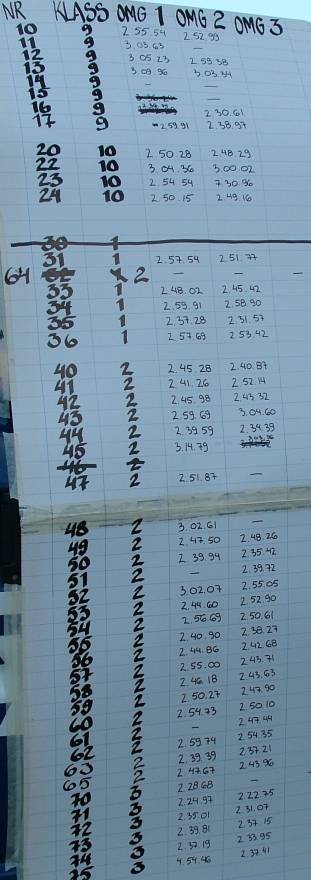 NR KLASS OMG 1 OMG 2 OMG 3
10 9 2 55.54 2 52 99
11 9 3.03.63 —
12 9 3.05 23 2 59.38
13 9 3 09 96 3 03 34
14 9 — —
15 9 —
16 9 2.30.61
17 9 2 59.91 2.38.97
20 10 2.50.28 2.48.29
22 10 3.04.36 3.00.02
23 10 2 54 54 7.30.96
24 10 2 50.15 2.49.16
30 1
31 1 2.57.54 2.51.77
64 2 — — —
33 1 2 48.02 2.45.42
34 1 2.59.91 2.58.90
35 1 2.37.28 2.31.57
36 1 2 57.69 2 53.42
40 2 2.45.28 2.40.87
41 2 2 41.26 2.52.14
42 2 2.45.98 2.43 32
43 2 2 59 69 3.04.60
44 2 2 39 59 2.34.39
45 2 3.14.79
46 2
47 2 2.51.87 —
48 2 3 02.61 —
49 2 2 47.50 2.48.26
50 2 2. 39.94 2.35.42
51 2 — 2.39.72
52 2 3 02.07 2.55.05
53 2 2.44.60 2.52.90
54 2 2.56.69 2.50.61
55 2 2.40.90 2 38.27
56 2 2.44.86 2.42.68
57 2 2.55.00 2.43.71
58 2 2.46.18 2.43.63
59 2 2.50.27 2.47.90
60 2 2.54.73 2.50.10
61 2 — 2.47.44
62 2 2.59 74 2.54.35
63 2 2.39.39 2.37.21
65 2 2.47.67 2.43.96
70 3 2.28.68 —
71 3 2.24.97 2.22.75
72 3 2.35.01 2.31.07
73 3 2.39.81 2.37.15
74 3 2.37.19 2.33.95
75 3 4.54.46 2.37.41